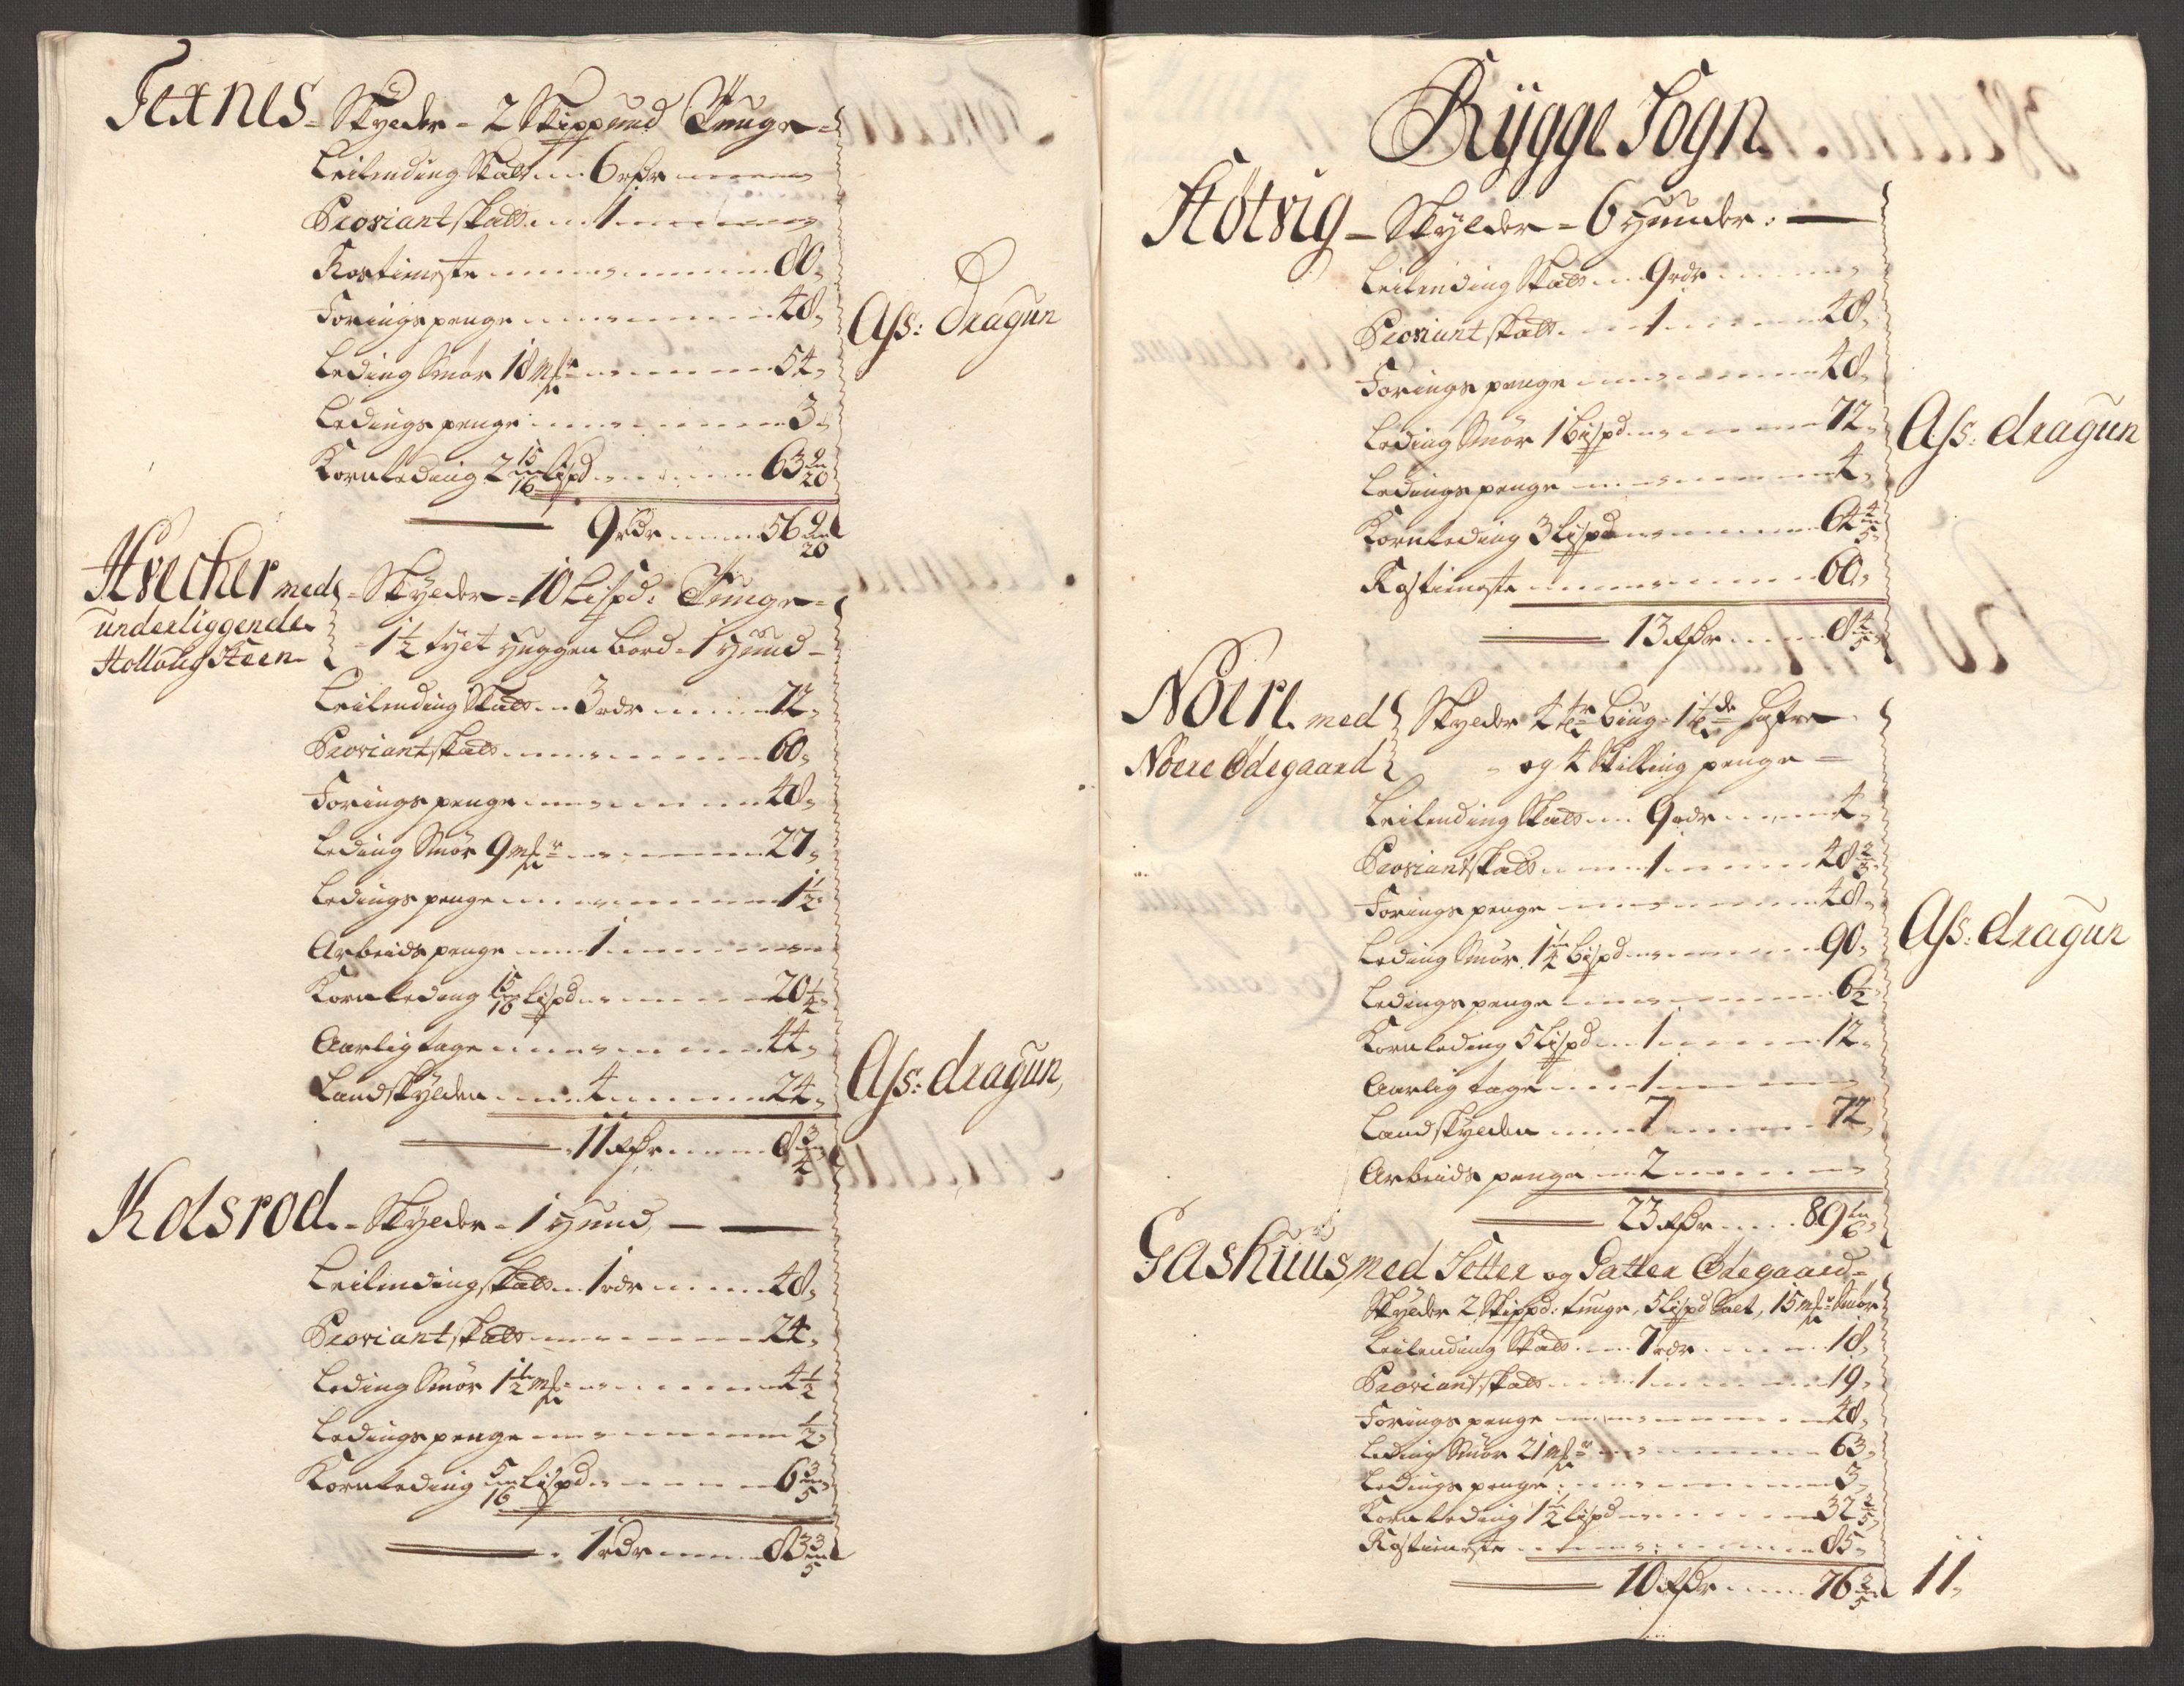 Texnes - Skylder - 2 Skippund Tunge -
Leilending Skatt 6 rdr
Proviantskatt 1
Kostimeste 80,
Foringspenge 48,
Leding Smør 18 mk 54,
Ledings penge 3
Kornleding 2 15/16 Lispd 63 9/20
9 rdr 56 9/20
Ass: dragun
Hvecher med - Skylder - 10 Lispd: Tunge -
underliggende
Holloug Steen - 1 1/2 tylt Huggen bord - 1 Hund -
Leilending Skatt 3 rdr 72,
Proviantskatt 60,
Foringspenge 48,
Leding Smør 9 mk 27,
Ledings penge 1 1/2
Arbeidspenge 1
Kornleding 15/16 Lispd 20 1/4
Aarligtage 44,
Landskylden 4 24,
11 rdr 8 3/4
Ass: dragun,
Kolsrod - Skylder - 1 Hund, -
Leilendingskatt 1 rdr 48,
Proviantskatt 24,
Leding Smør 1 1/2 mk 4 1/2
Ledings penge 1/2
Kornleding 5/16 Lispd 6 3/5
1 rdr 83 3/5
Rygge Sogn
Støtvig - Skylder - 6 Hunder: -
Leilending Skatt 9 rdr
Proviantskatt 1 48,
Foringspenge 48,
Leding Smør 1 Bispd 72,
Ledings penge 4,
Kornleding 3 Lispd 64 4/5
Kostimeste 60,
13 rdr 8 4/5
Ass: dragun
Nöere med Skylder 4 tr Biug - 1 tde Hafre
Nöere Ødegaard - og 4 Skilling penge -
Leilending Skatt 9 rdr 4,
Proviantskatt 1 48 2/3
Foringspenge 48,
Leding Smør 1 1/4 Bispd 90,
Ledings penge 6 1/2
Kornleding 5 Lispd 1 12,
Aarlig tage 1
Landskylden 7 72
Arbeids penge 2
23 rdr 89 1/6
Ass: dragun
Gashuus, med Setter og Gatter Ødegaard -
Skylder 2 Skippd: tunge, 5 Lispd Salt, 15 mk Smør
Leilending Skatt 7 rdr 18,
Proviantskatt 1 19,
Foringspenge 48,
Leding Smør 21 mk 63,
Ledings penge 3,
Kornleding 1 1/2 Lispd 32 2/5
Kostimeste 85,
10 rdr 76 2/5
11,